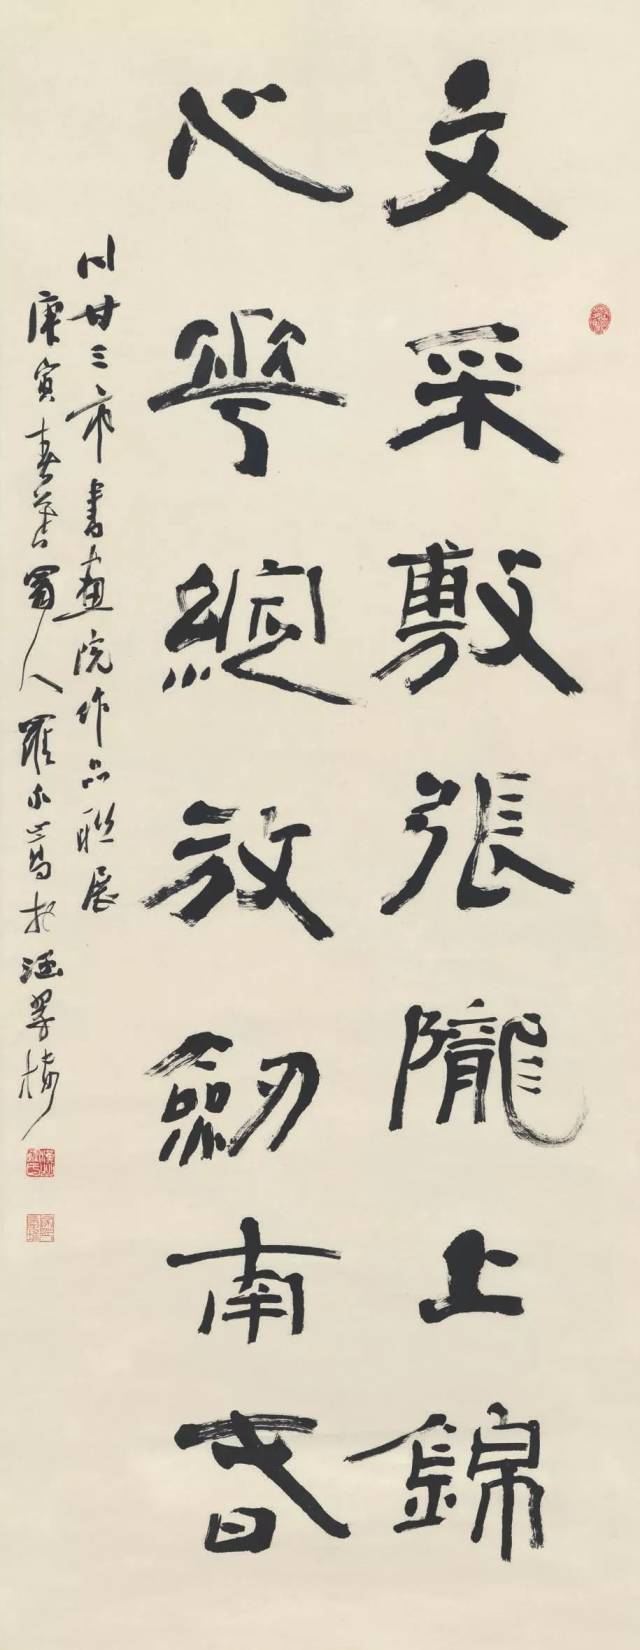 文采敷張隴上錦
心華綻放劒南春
川甘三市書畫院作品聯展
庚寅春暮蜀人羅永嵩於涵翠樓